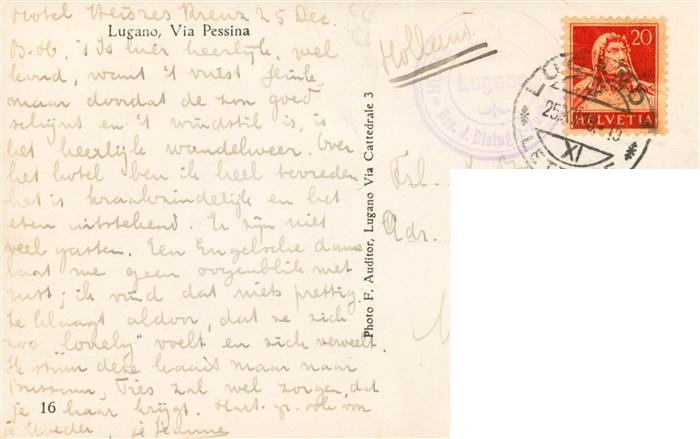 Hotel Weiszes Kreuz 25 Dec.
Lugano, Via Pessina
B.H. 't Is hier heerlijk, wel
koud, want 't vriest flink
maar doordat de zon goed
schijnt en 't windstil is, is
het heerlijk wandelweer. Over
het hotel ben ik heel tevreden
het is kraakzindelijk en het
eten uitstekend. Er zijn niet
veel gasten. Een Engelsche dame
laat me geen oogenblik met
rust; ik vind dat niets prettig
Ze klaagt aldoor, dat ze zich
zoo "lonely" voelt en zich verveelt.
Ik stuur deze kaart maar naar
Bussum, Ties zal wel zorgen, dat
je haar krijgt. Hart. gr. ook van
je Moeder, je Jeanne
16
Photo F. Auditor, Lugano Via Cattedrale 3
Holland
Lugano
Bes. J. Bisinger
20
HELVETIA
LUGANO
25
IX
Frl.
Adr.